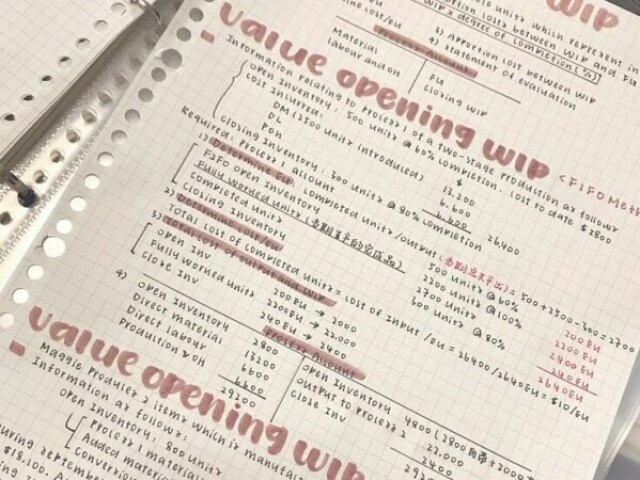 WIP
whole units which represent in
3) Apportion cost between WIP and FG
WIP x degree of completion (%)
4) statement of evaluation
Process Account
Material
labour and OH
FG
Closing WIP
value opening WIP (FIFO Meth
Information relating to Process 1 of a two-stage production as follows
Open Inventory: 500 units @ 60% completion. Cost to date $2800
Cost Incurred: $
DM (2500 units introduced) 13,200
DL 6,600
POH 6,600 26,400
Closing Inventory: 300 units @ 80% completion
Required: Process 1 account
1) Determine EU: Completed units/output (本期总共产出) = 500 + 2500 - 300 = 2700
FIFO Open Inventory 500 units @ 60% 200 EU
Fully Worked units (本期生产的完成品) 2200 units @ 100% 2200 EU
Completed units 2700 units 2400 EU
Closing Inventory 300 units @ 80% 240 EU
2640 EU
2) Determine cost/EU
Total cost of completed units = cost of input /EU = 26400/2640EU = $10/EU
3) Total cost of output and WIP
Open Inv 200 EU → 2000
Fully Worked units 2200 EU → 22000
Close Inv 240 EU → 2400
4) Process Account
Open Inventory 2800
Direct material 13200
Direct labour 6600
Production OH 6600
29200
Open Inventory 4800 (2800 + 2000
Output to Process 2 22,000
Close Inv 2400
value opening WIP
Maggie Produces 2 items which is manufac
Information as follows:
Open Inventory: 800 units
Process 1 material
Added material
Conversion
uring september
$18,100.